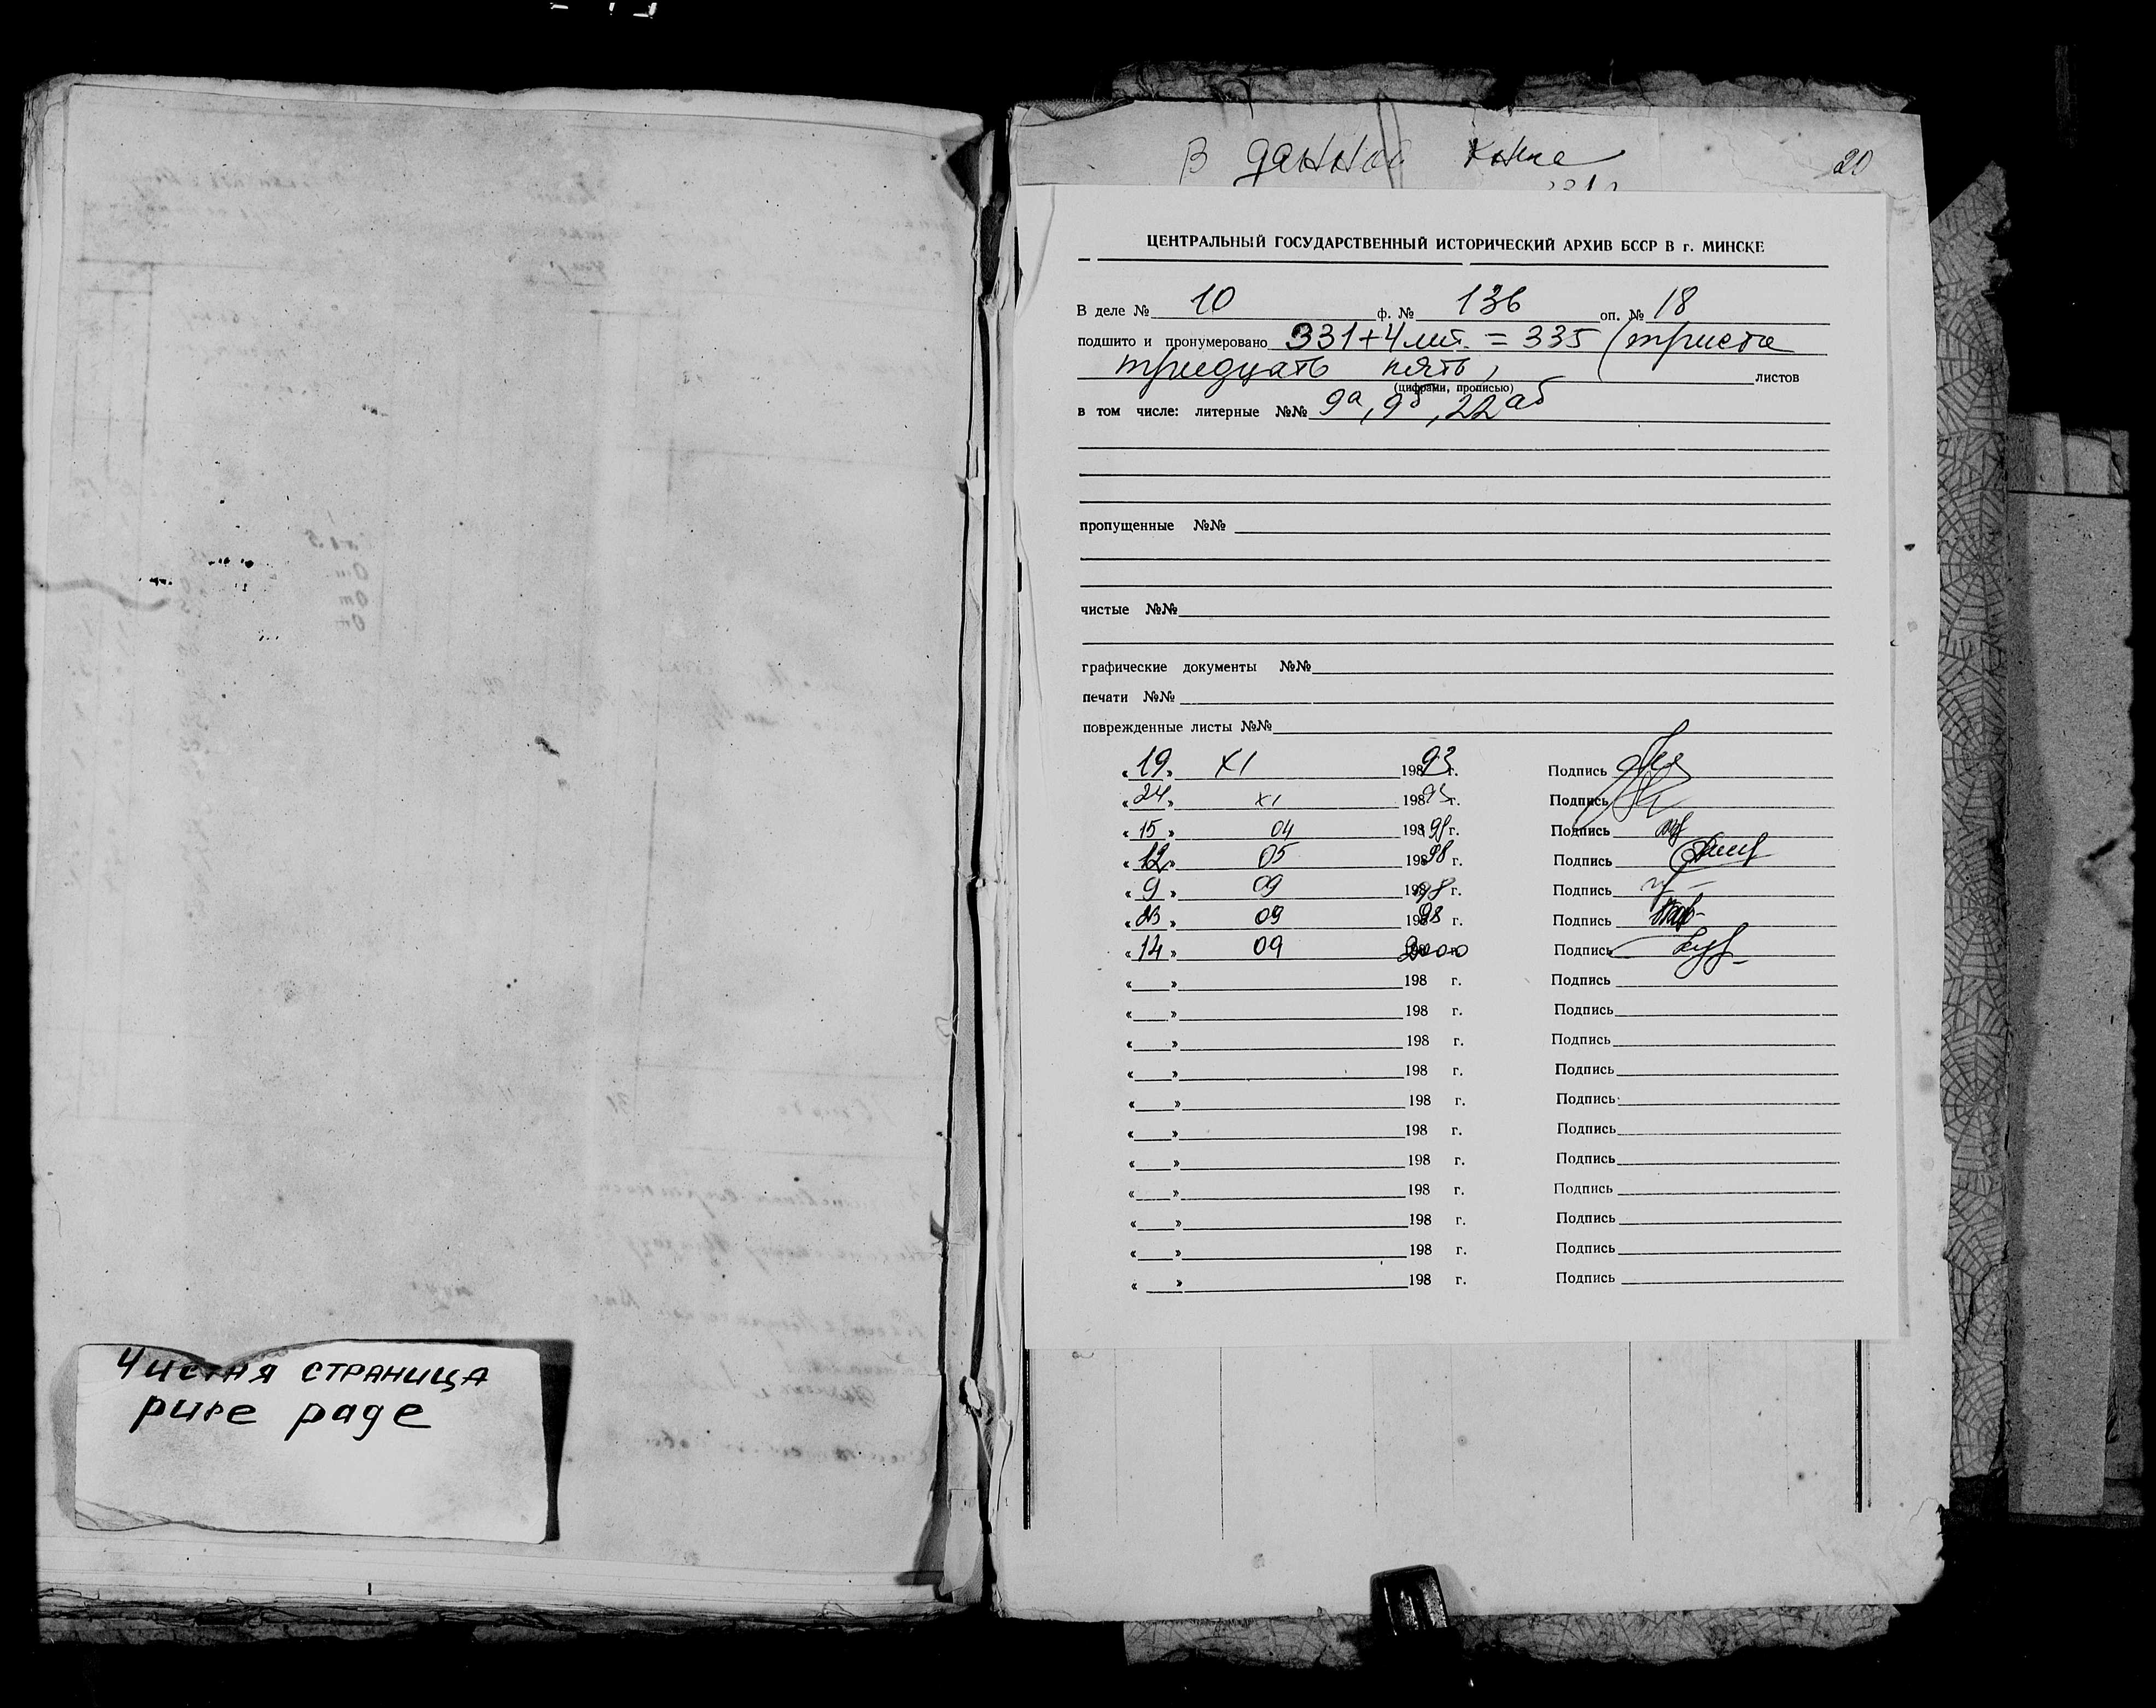 Чистая страница
pure page
В данной книге
20
ЦЕНТРАЛЬНЫЙ ГОСУДАРСТВЕННЫЙ ИСТОРИЧЕСКИЙ АРХИВ БССР В г. МИНСКЕ
В деле № 10 ф. № 136 оп. № 18
подшито и пронумеровано 331+4 лит. = 335 (триста
тридцать пять) листов
(цифрами, прописью)
в том числе: литерные №№ 9а, 9б, 22аб
пропущенные №№
чистые №№
графические документы №№
печати №№
поврежденные листы №№
«19» XI 19893 г. Подпись
«24» XI 19893 г. Подпись
«15» 04 198 г. Подпись
«12» 05 19898 г. Подпись
«9» 09 19898 г. Подпись
«23» 09 19898 г. Подпись
«14» 09 2000 Подпись
«   » 198   г. Подпись
«   » 198   г. Подпись
«   » 198   г. Подпись
«   » 198   г. Подпись
«   » 198   г. Подпись
«   » 198   г. Подпись
«   » 198   г. Подпись
«   » 198   г. Подпись
«   » 198   г. Подпись
«   » 198   г. Подпись
«   » 198   г. Подпись